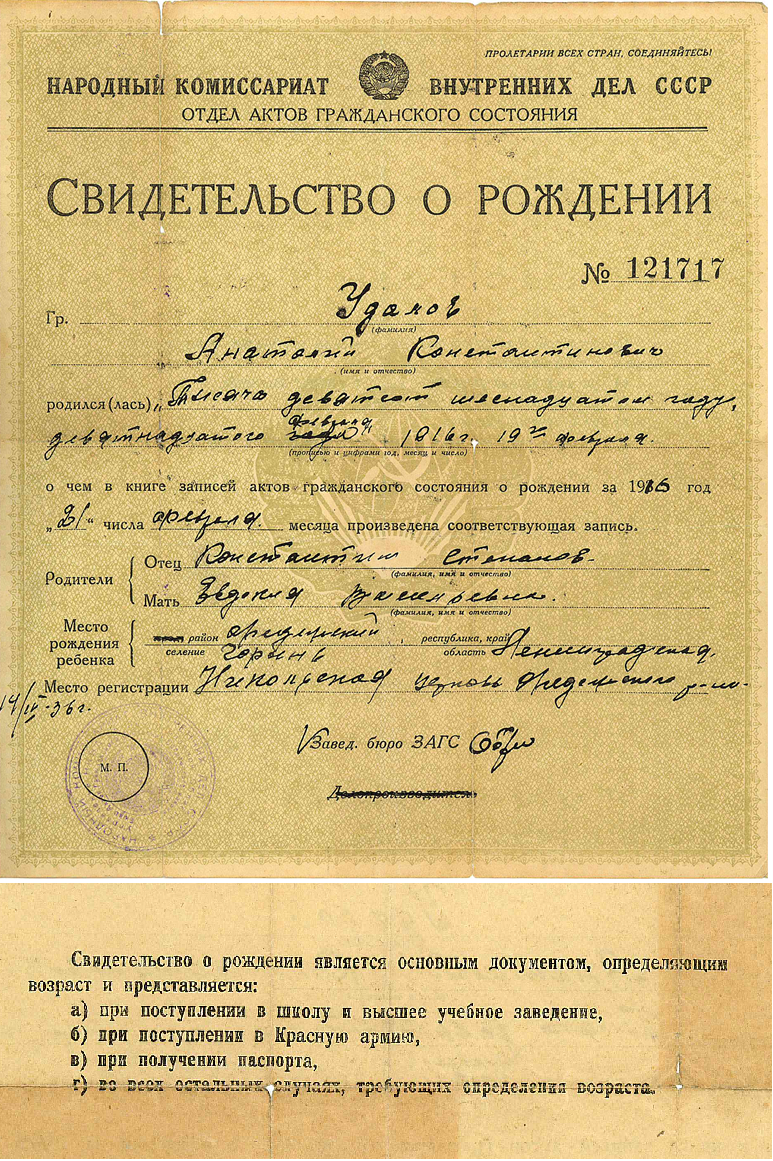 ПРОЛЕТАРИИ ВСЕХ СТРАН, СОЕДИНЯЙТЕСЬ!
НАРОДНЫЙ КОМИССАРИАТ ВНУТРЕННИХ ДЕЛ СССР
ОТДЕЛ АКТОВ ГРАЖДАНСКОГО СОСТОЯНИЯ
СВИДЕТЕЛЬСТВО О РОЖДЕНИИ
№ 121717
Гр. Удалов
(фамилия)
Анатолий Константинович
(имя и отчество)
родился (лась) „Тысяча девятсот шеснадцатом году,
февраля
девятнадцатого года" 1916 г. 19го февраля.
(прописью и цифрами год, месяц и число)
о чем в книге записей актов гражданского состояния о рождении за 1916 год
„21" числа февраля. месяца произведена соответствующая запись.
Родители
Отец Константин Степанов.
(фамилия, имя и отчество)
Мать Евдокия Васильевна.
(фамилия, имя и отчество)
Место рождения ребенка
район республика, край
селение Горынь область Ленинградская.
Место регистрации Никольская церковь
14/IV-36г.
Завед. бюро ЗАГС
М. П.
Делопроизводитель
Свидетельство о рождении является основным документом, определяющим
возраст и представляется:
а) при поступлении в школу и высшее учебное заведение,
б) при поступлении в Красную армию,
в) при получении паспорта,
г) во всех остальных случаях, требующих определения возраста.